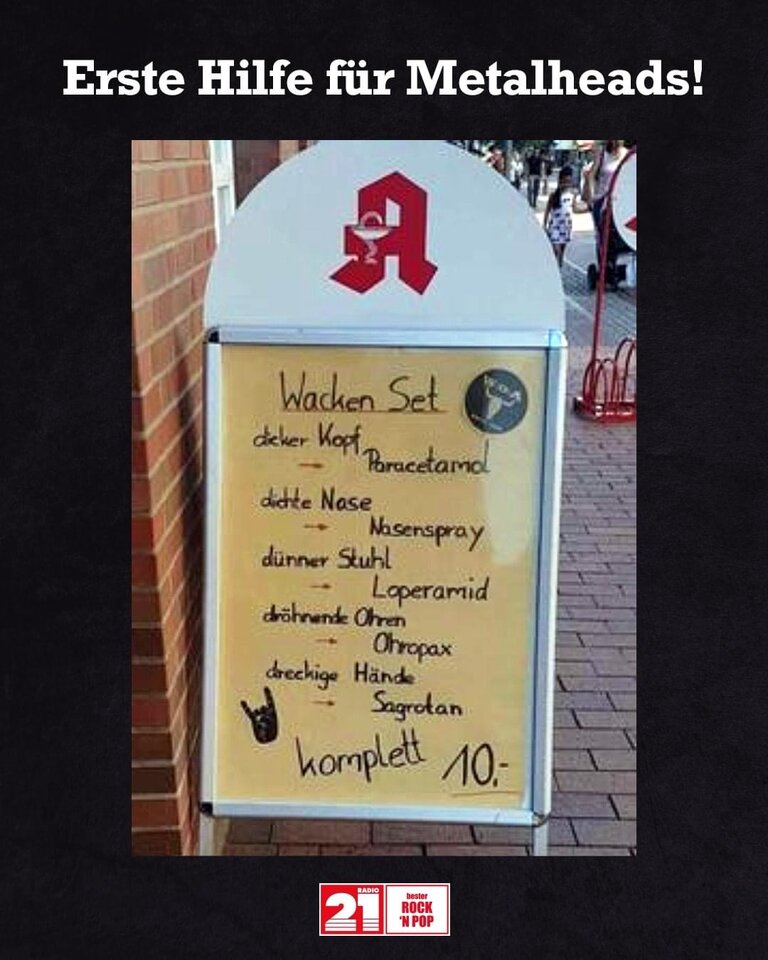 Erste Hilfe für Metalheads!
A
Wacken Set
dicker Kopf
→ Paracetamol
dichte Nase
→ Nasenspray
dünner Stuhl
→ Loperamid
dröhnende Ohren
→ Ohropax
dreckige Hände
→ Sagrotan
komplett 10,-
RADIO
21
bester
ROCK
'N POP